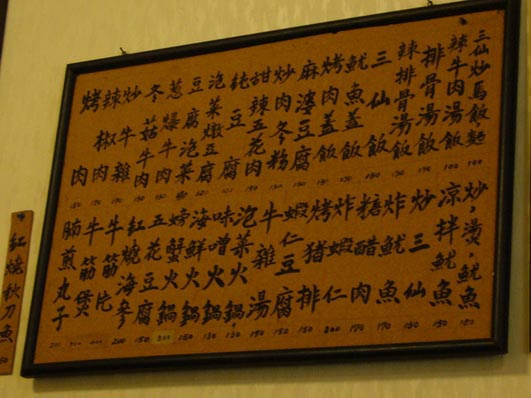 三仙炒馬飯麵 100
辣牛肉湯飯 100
排骨湯飯
辣排骨湯飯
三仙飯
魷魚蓋飯
烤肉蓋飯
麻婆豆腐飯
炒肉冬粉
甜辣五花肉
純豆腐
泡菜燉豆腐
豆腐泡菜
蔥爆牛肉
冬菇牛肉
炒牛雜
辣椒肉
烤肉
炒,燙,魷魚 150
涼拌魷魚 150
炒三仙 150
炸魷魚
糖醋肉
炸蝦仁 200
烤豬排 150
蝦仁豆腐 150
牛雜湯 150
泡菜火鍋
味噌火鍋
海鮮火鍋 150
螃蟹火鍋 300
五花豆腐 150
紅燒海參 200
牛筋片
牛筋煲
肺煎丸子
紅燒秋刀魚